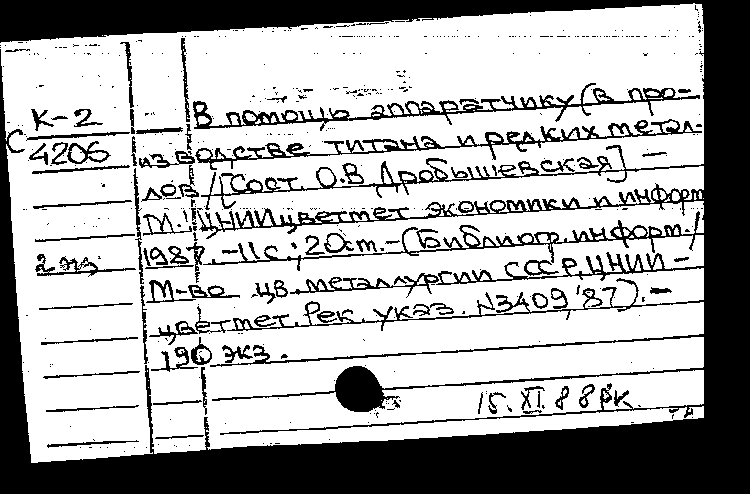 К-2
С 4206
2 экз
В помощь аппаратчику (в про-
изводстве титана и редких метал-
лов /[Сост. О.В. Дробышевская]. —
М.: ЦНИИцветмет экономики и информ
1987. - 11 с.; 20 см. - (Библиогр. информ. /
М-во цв. металлургии СССР, ЦНИИ-
цветмет. Рек. указ. N3409,'87). —
190 экз.
15. XI. 88 рк.